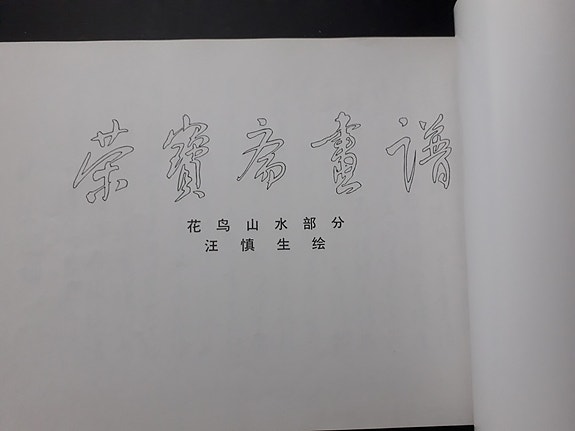 荣寶斋畫谱
花鸟山水部分
汪慎生绘